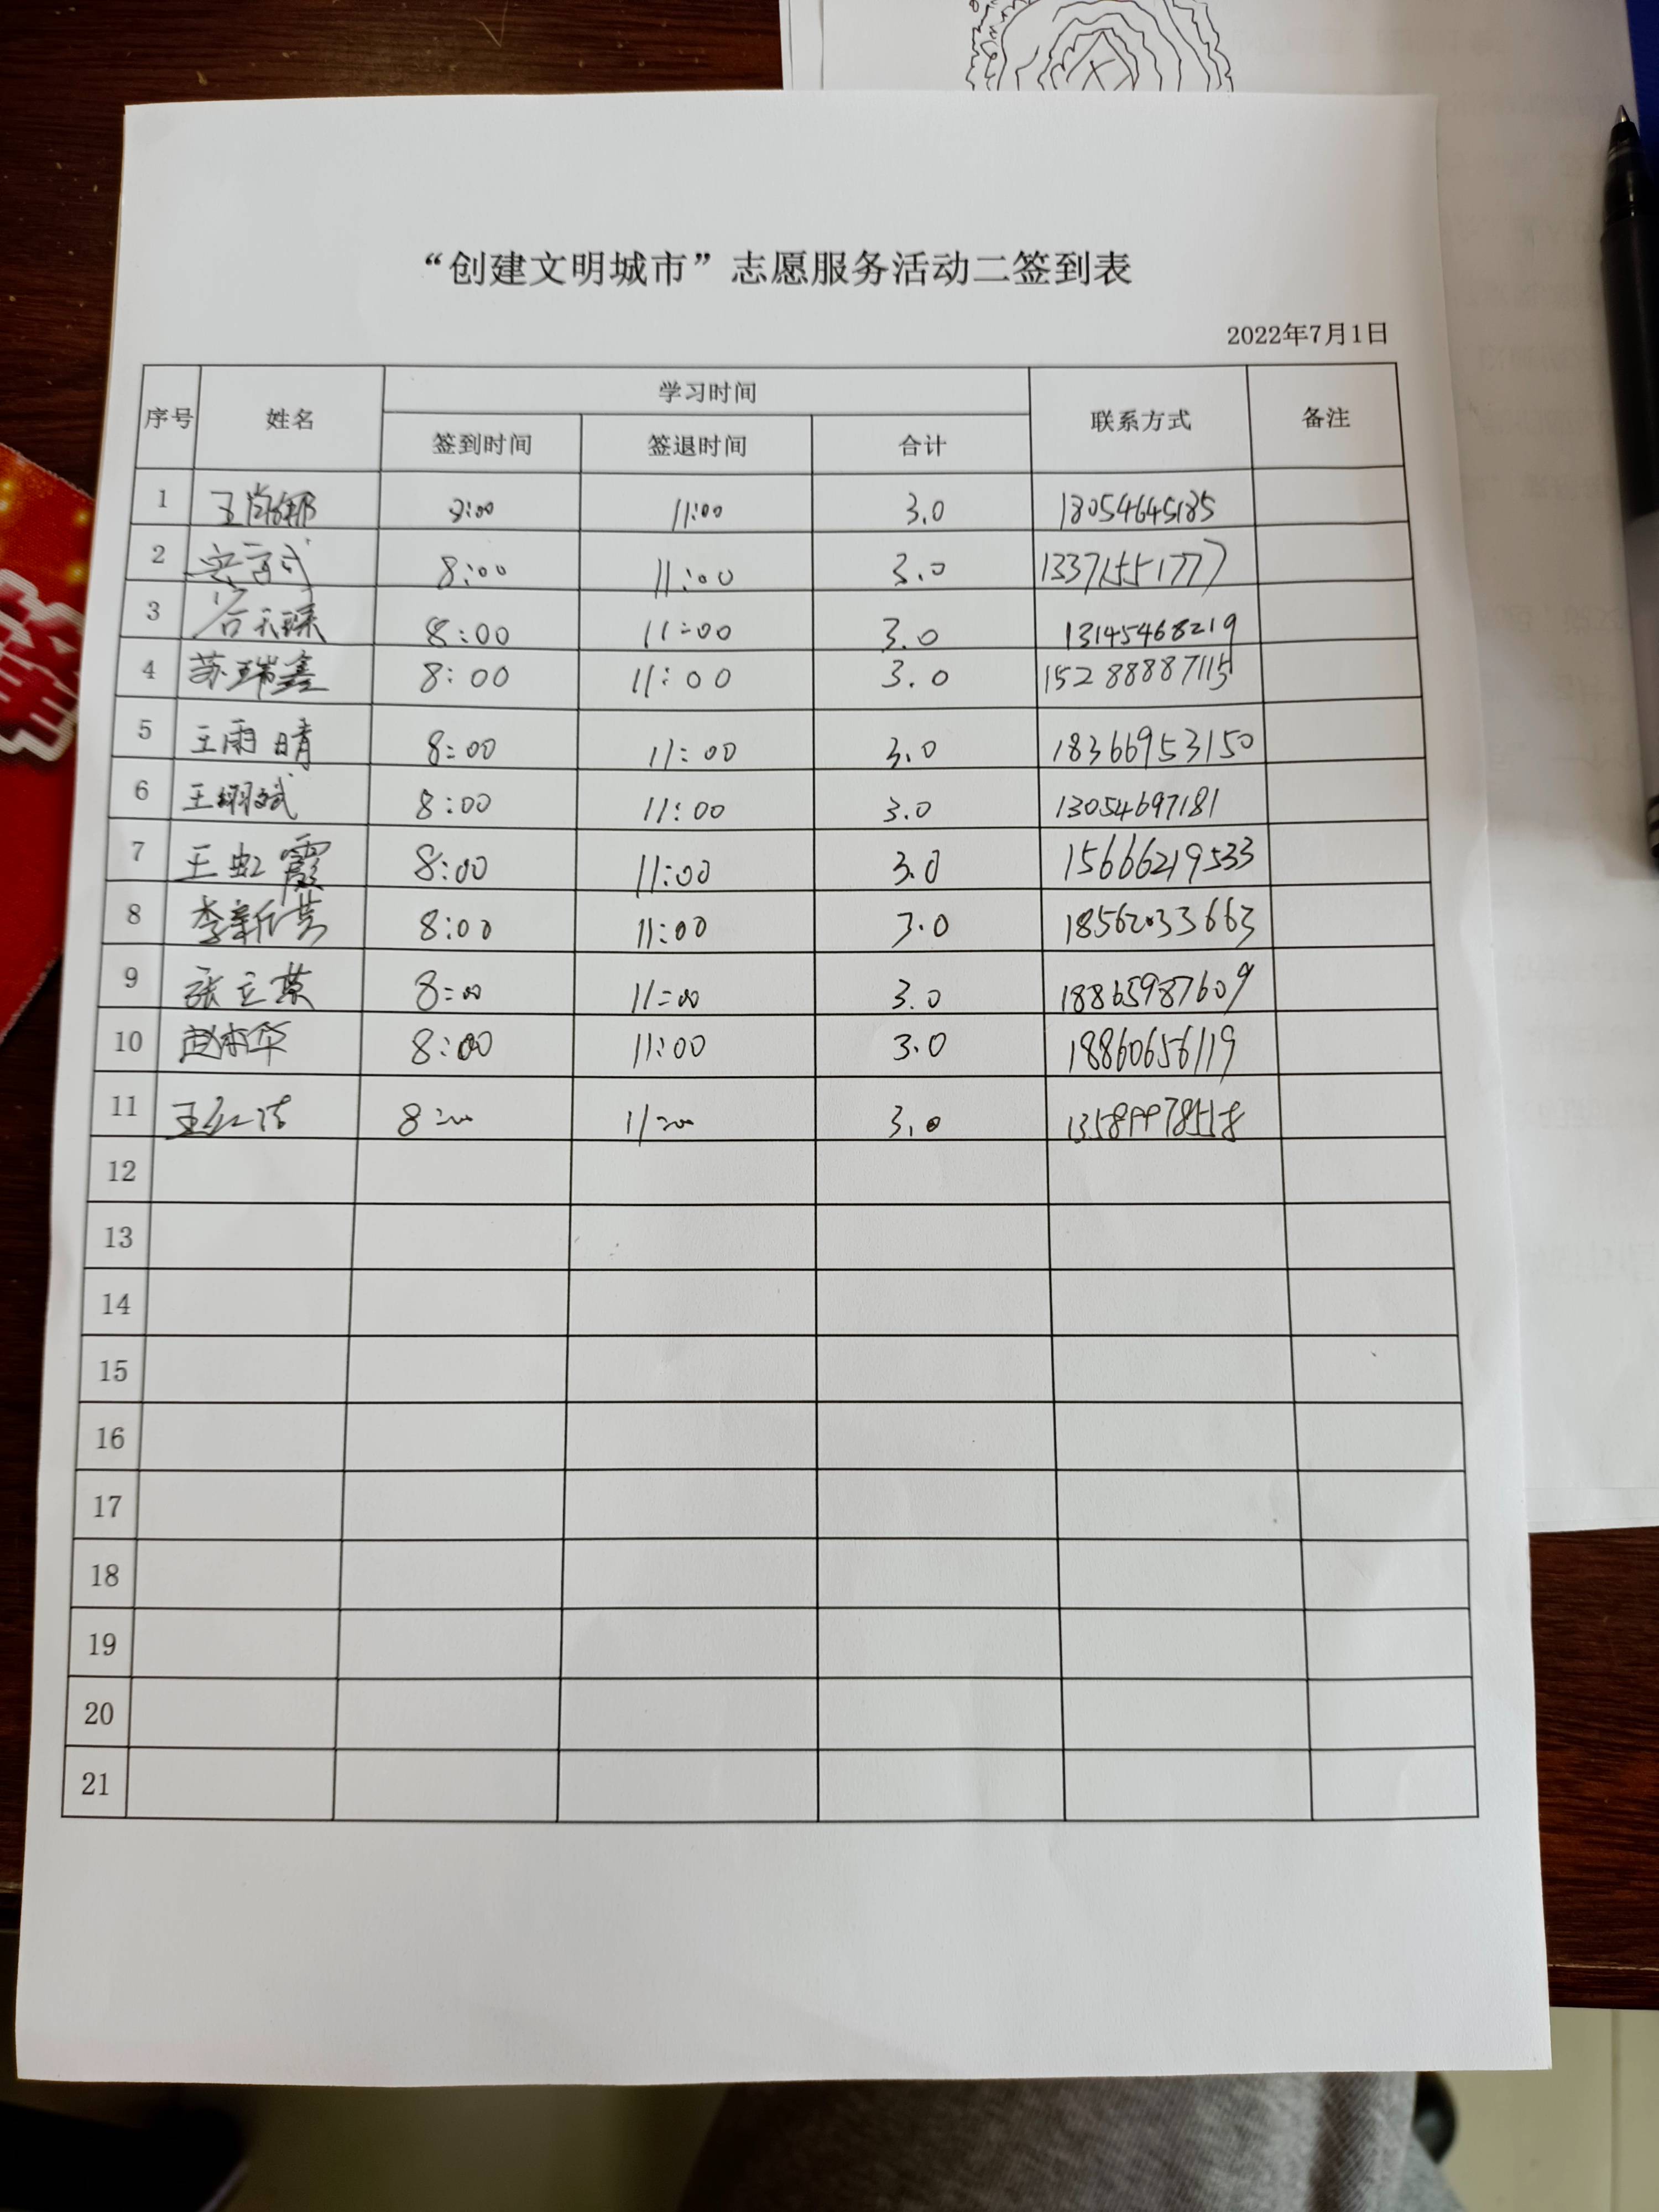 “创建文明城市”志愿服务活动二签到表
2022年7月1日
序号 姓名 学习时间 联系方式 备注
签到时间 签退时间 合计
1 王尚娜 8:00 11:00 3.0 18054645185
2 8:00 11:00 3.0 13371551777
3 8:00 11:00 3.0 13145468219
4 苏瑞鑫 8:00 11:00 3.0 15288887115
5 王雨晴 8:00 11:00 3.0 18366953150
6 王翊斌 8:00 11:00 3.0 13054697181
7 王虹霞 8:00 11:00 3.0 15666219533
8 李新芳 8:00 11:00 3.0 18562033663
9 张立荣 8:00 11:00 3.0 18865987609
10 赵 华 8:00 11:00 3.0 18860656119
11 王红洁 8:00 11:00 3.0
12
13
14
15
16
17
18
19
20
21